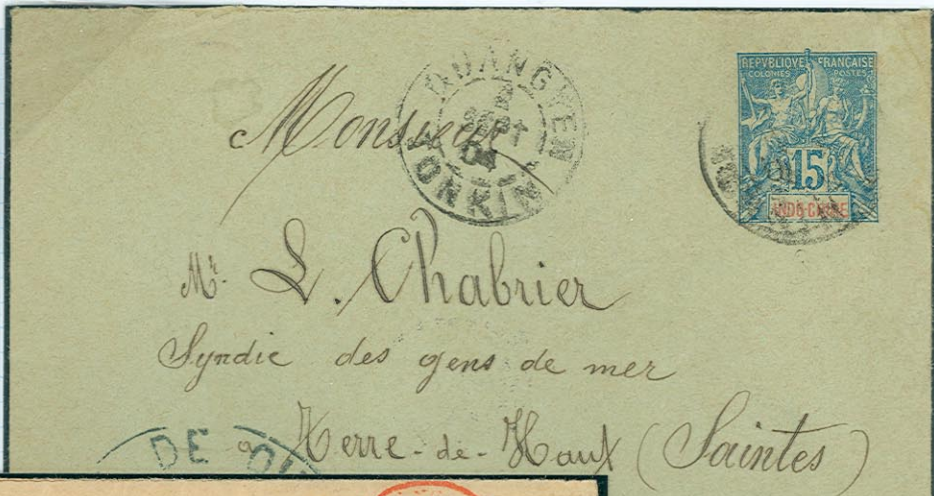 REPVBLIQUE FRANÇAISE
COLONIES POSTES
15
INDO-CHINE
QUANG-YEN
2
SEPT
04
TONKIN
Monsieur
Mr. L. Chabrier
Syndic des gens de mer
a Terre-de-Haut (Saintes)
DE